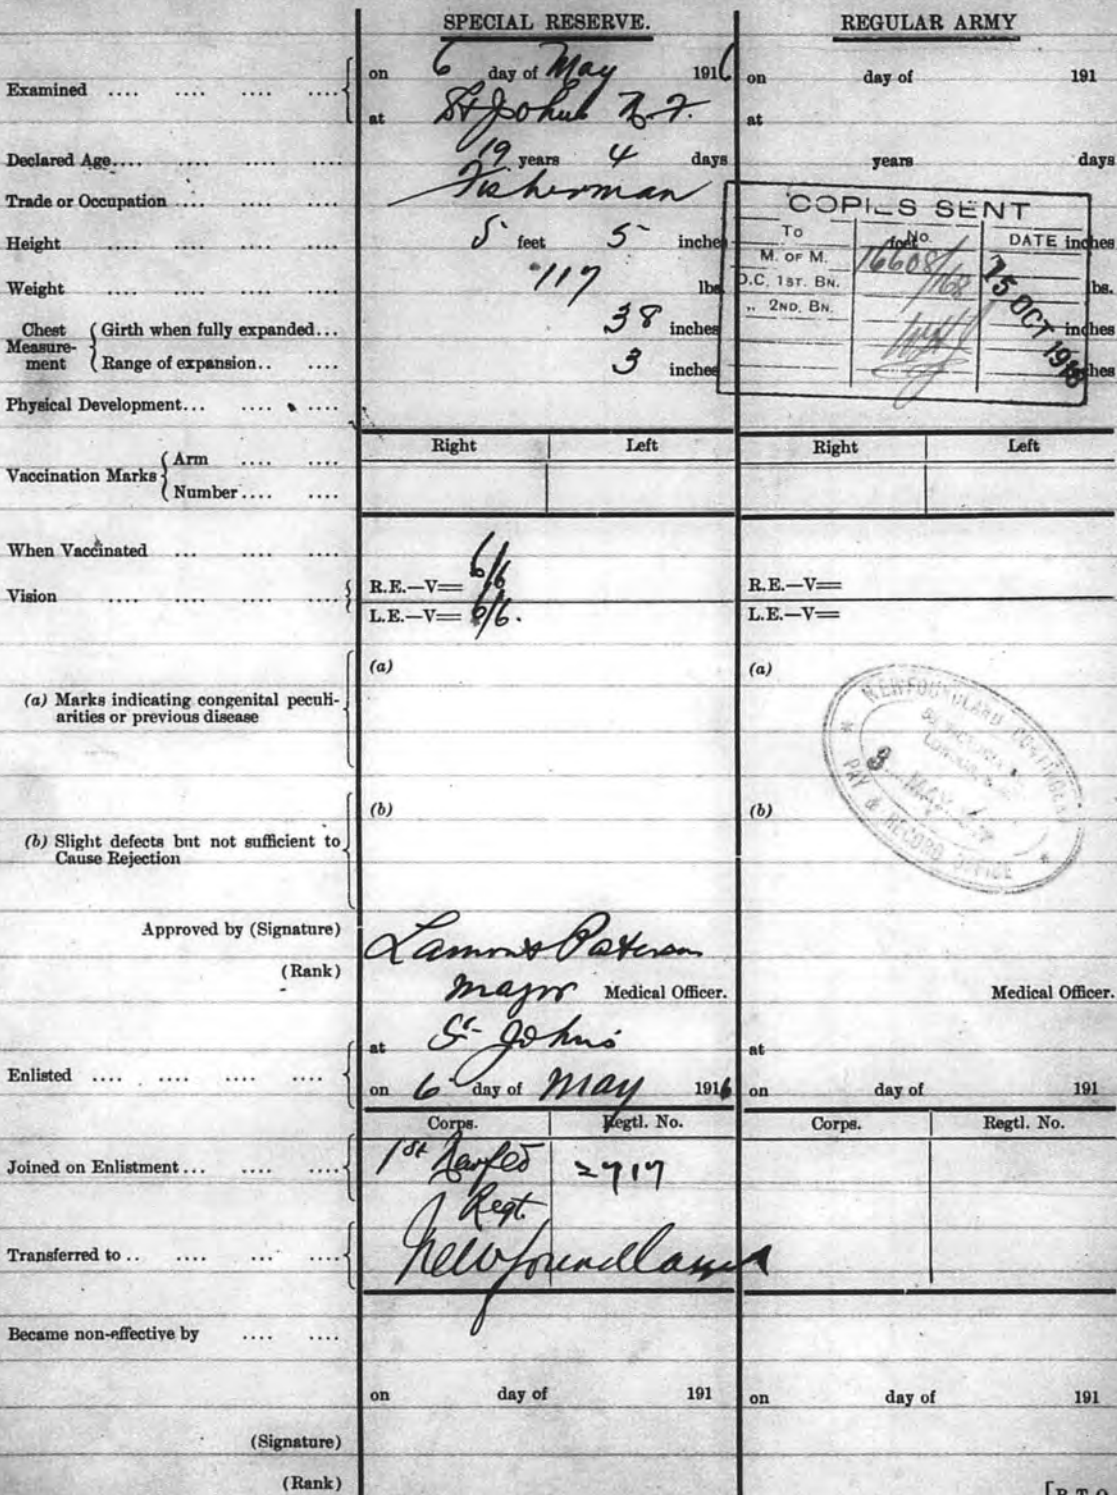 SPECIAL RESERVE. REGULAR ARMY
Examined .... .... .... .... on 6 day of May 1916 on day of 191
at St Johns N.F. at
Declared Age.... .... .... .... 19 years 4 days years days
Trade or Occupation .... .... .... Fisherman
Height .... .... .... .... 5 feet 5 inches feet inches
Weight .... .... .... .... 117 lbs. lbs.
Chest Measurement Girth when fully expanded... 38 inches inches
Range of expansion.. .... 3 inches inches
COPIES SENT
To No. DATE
M. OF M. 16608/168 15 OCT 1918
O.C. 1ST. BN.
„ 2ND. BN.
Physical Development... .... ....
Right Left Right Left
Vaccination Marks Arm .... ....
Number .... ....
When Vaccinated ... .... ....
Vision .... .... .... .... R.E.—V= 6/6 R.E.—V=
L.E.—V= 6/6. L.E.—V=
(a) Marks indicating congenital peculiarities or previous disease (a) (a)
NEWFOUNDLAND
PAY & RECORD OFFICE
(b) Slight defects but not sufficient to Cause Rejection (b) (b)
Approved by (Signature) Lamont Paterson
(Rank) Major Medical Officer. Medical Officer.
at St Johns at
Enlisted .... .... .... .... on 6 day of May 1916 on day of 191
Corps. Regtl. No. Corps. Regtl. No.
Joined on Enlistment... .... .... 1st Newfld 2717
Regt.
Transferred to .. .... ... .... Newfoundland
Became non-effective by .... ....
on day of 191 on day of 191
(Signature)
(Rank)
[P.T.O.